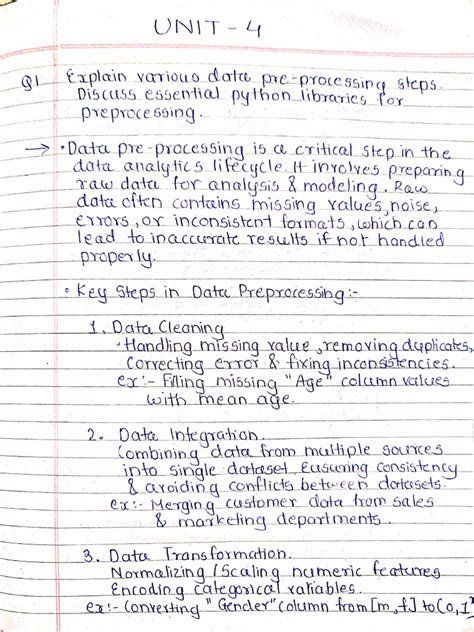 UNIT - 4
Q1 Explain various data pre-processing steps.
Discuss essential python libraries for
preprocessing.
→ • Data pre-processing is a critical step in the
data analytics lifecycle. It involves preparing
raw data for analysis & modeling. Raw
data often contains missing values, noise,
errors, or inconsistent formats, which can
lead to inaccurate results if not handled
properly.
• Key Steps in Data Preprocessing:-
1. Data Cleaning
• Handling missing value, removing duplicates,
Correcting error & fixing inconsistencies.
ex:- Filling missing "Age" column values
with mean age.
2. Data Integration.
Combining data from multiple sources
into single dataset, Ensuring consistency
& avoiding conflicts between datasets.
ex:- Merging customer data from sales
& marketing departments.
3. Data Transformation.
Normalizing / Scaling numeric features
Encoding categorical variables.
ex:- Converting "Gender" column from [m, f] to [0, 1